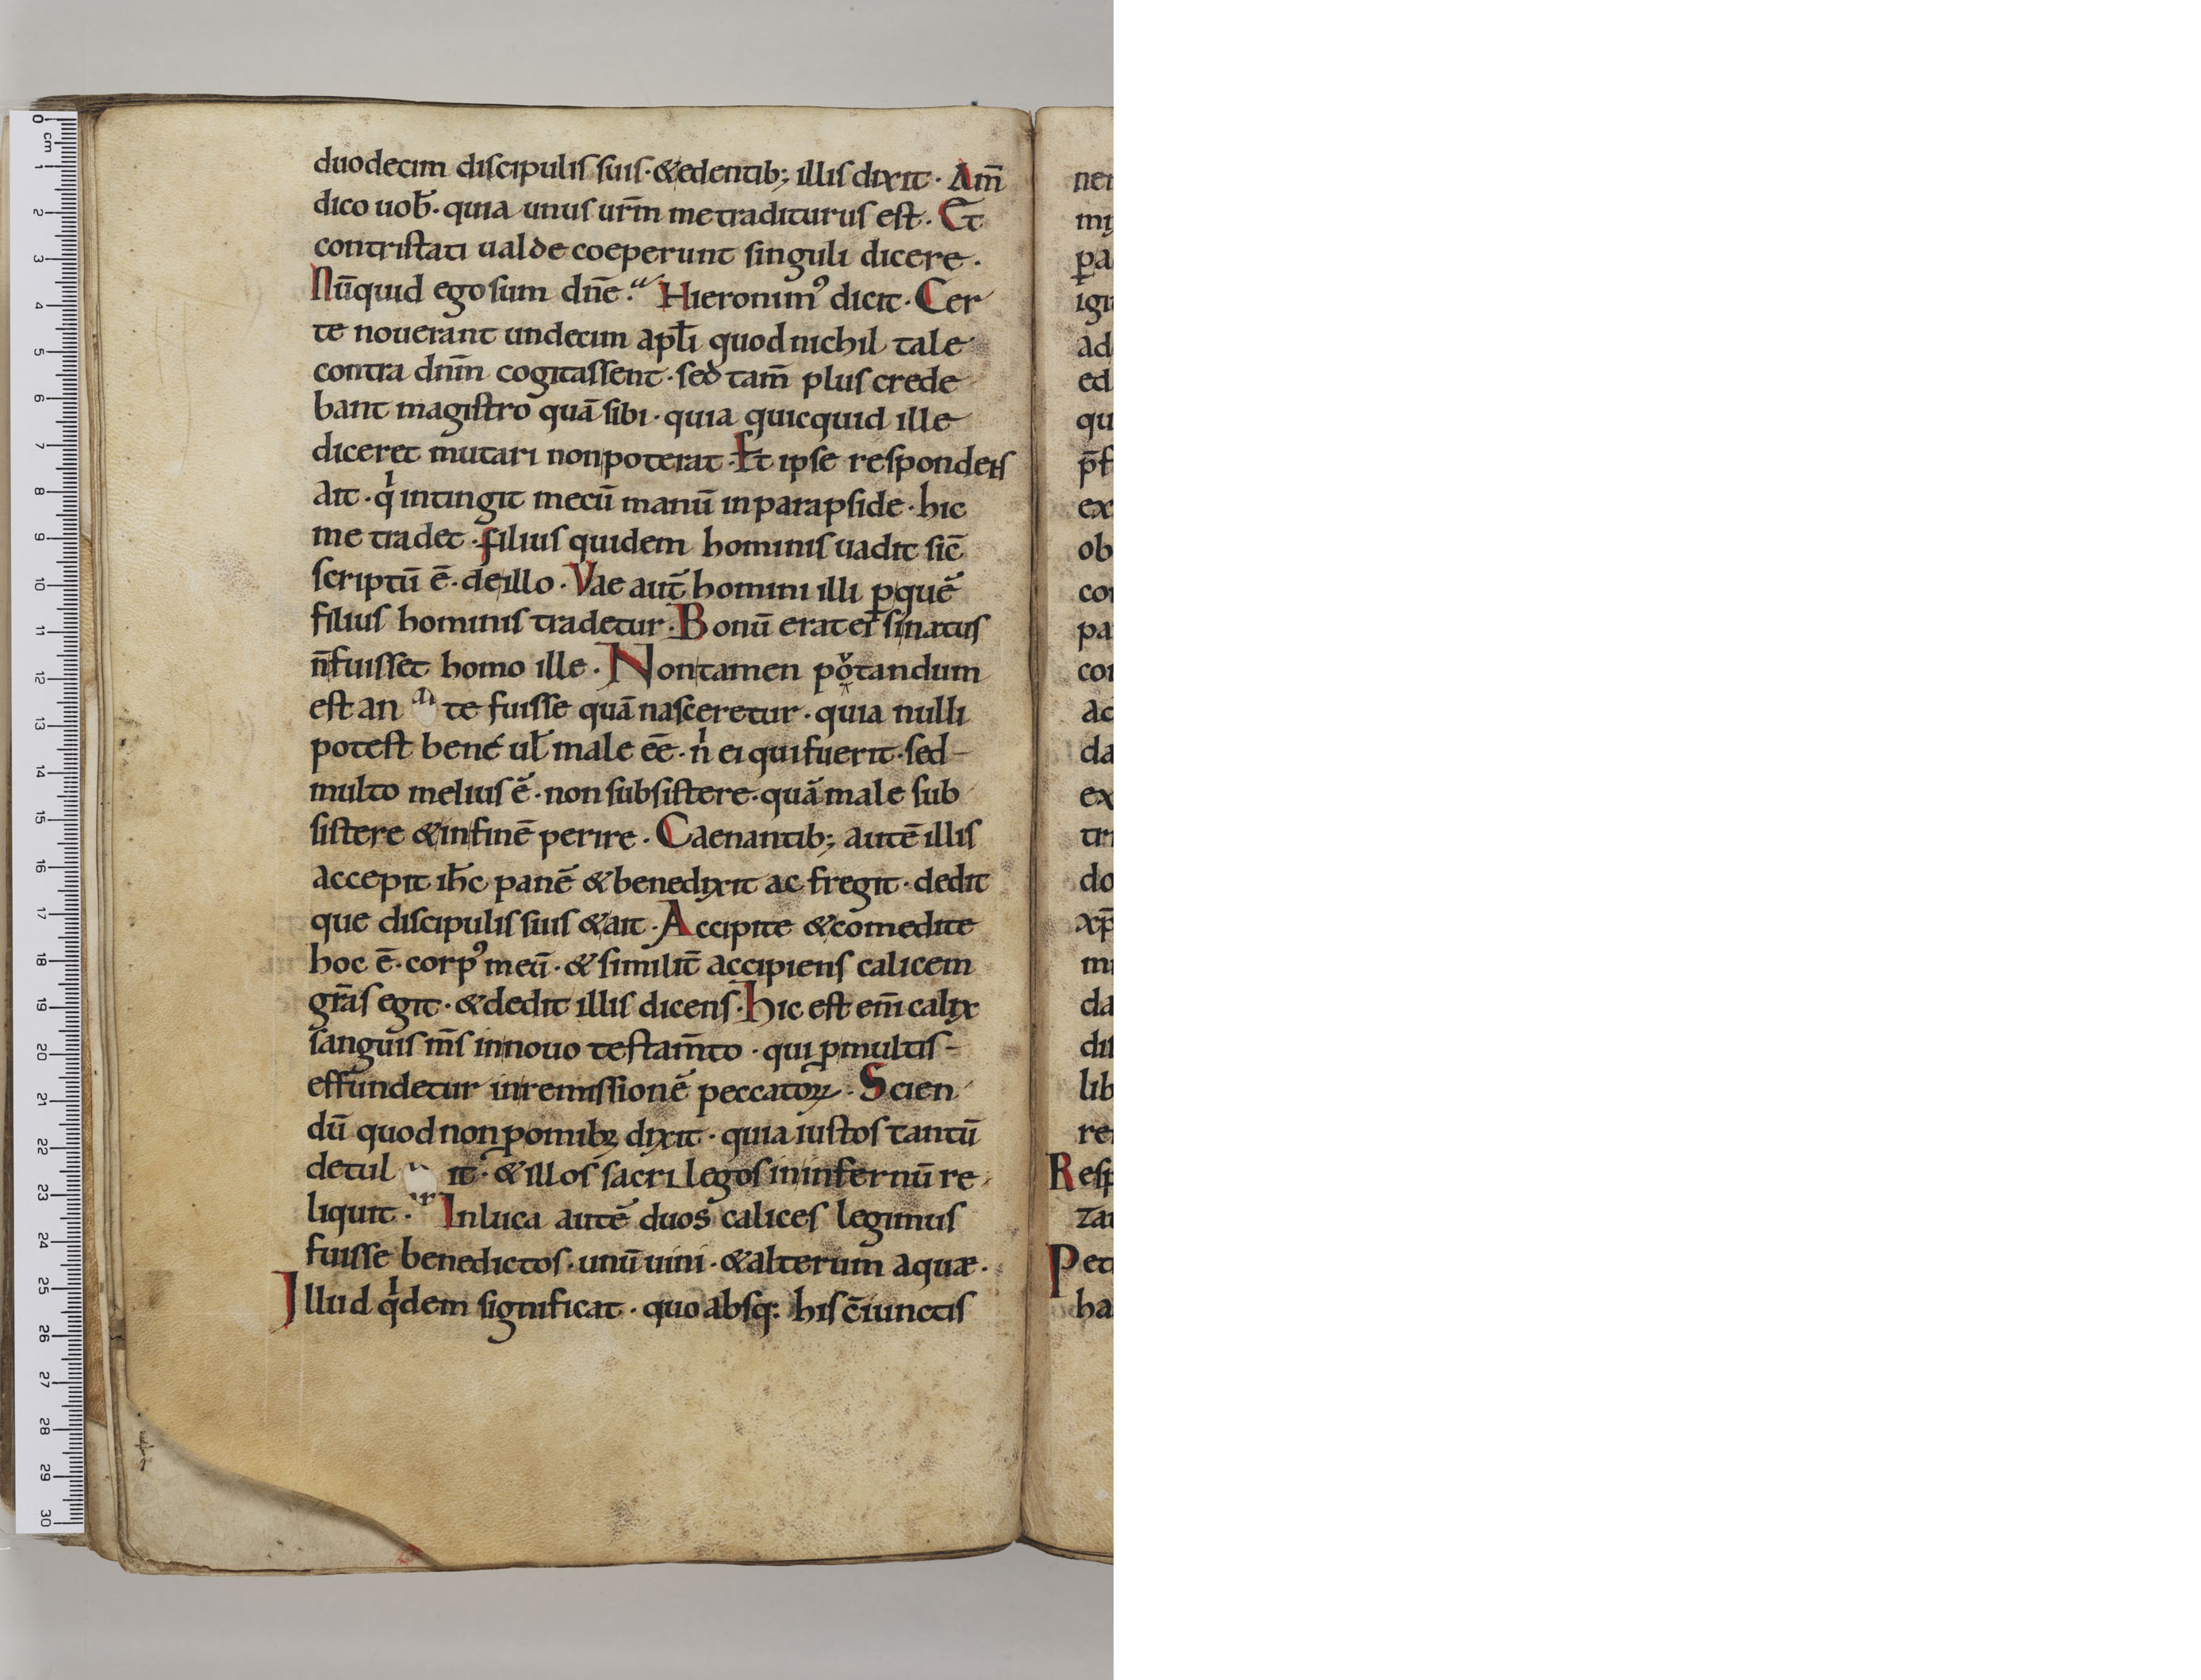 duodecim discipulis suis · &edentib; illis dixit · Am̄
dico uob̄ · quia unus ur̄m me traditurus est . Et
contristati ualde coeperunt singuli dicere .
Nūquid ego sum dn̄e . Hieronim᾽ dicit · Cer
te nouerant undecim apl̄i quod nichil tale
contra dn̄m cogitassent · sed tam̄ plus crede
bant magistro quā sibi · quia quicquid ille
diceret mutari non poterat · Et ipse respondens
ait · qͥ intingit mecū manū in parapside · hic
me tradet · filius quidem hominis uadit sic̄
scriptū ē · de illo · Vae aut̄ homini illi ꝑ quē
filius hominis tradetur . Bonū erat ei si natus
n̄ fuisset homo ille . Non tamen pǒtandum
est an te fuisse quā nasceretur · quia nulli
potest bene ul̄ male ēē · nͥ ei qui fuerit · sed
multo melius ē · non subsistere · quā male sub
sistere & in finē perire . Caenantib; autē illis
accepit ih̄c panē & benedixit ac fregit · dedit
que discipulis suis & ait · Accipite & comedite
hoc ē · corp᾽ meū · & similit̄ accipiens calicem
gr̄as egit · & dedit illis dicens . Hic est em̄ calix
sanguis m̄s in nouo testam̄to · qui ꝑ multis
effundetur in remissionē peccatoꝝ · Scien
dū quod non ꝑ omibꝫ dixit · quia iustos tantū
detul it · & illos sacrilegos in infernū re
liquit . In luca autē duos calices legimus
fuisse benedictos · unū uini · & alterum aquæ .
Illud qͥdem significat · quo absq: his c̄iunctis
ner
my
pa
igi
ad
ed
qu
ex
ob
con
pa
con
ac
da
ex
tri
do
xp̄
mi
da
dis
lib
re
Resp
zan
Pet
ha